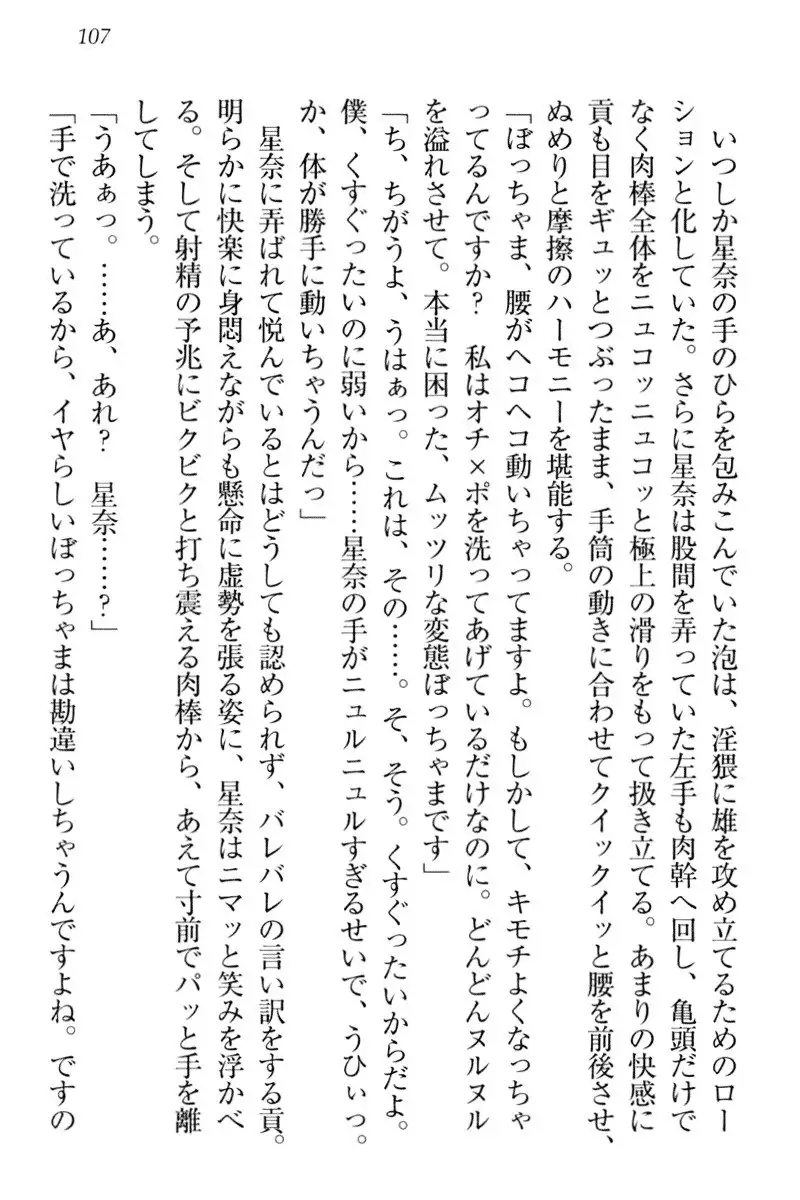 107
いつしか星奈の手のひらを包みこんでいた泡は、淫猥に雄を攻め立てるためのロー
ションと化していた。さらに星奈は股間を弄っていた左手も肉幹へ回し、亀頭だけで
なく肉棒全体をニュコッニュコッと極上の滑りをもって扱き立てる。あまりの快感に
貢も目をギュッとつぶったまま、手筒の動きに合わせてクイックイッと腰を前後させ、
ぬめりと摩擦のハーモニーを堪能する。
「ぼっちゃま、腰がヘコヘコ動いちゃってますよ。もしかして、キモチよくなっちゃ
ってるんですか？　私はオチ×ポを洗ってあげているだけなのに。どんどんヌルヌル
を溢れさせて。本当に困った、ムッツリな変態ぼっちゃまです」
「ち、ちがうよ、うはぁっ。これは、その……。そ、そう。くすぐったいからだよ。
僕、くすぐったいのに弱いから……星奈の手がニュルニュルすぎるせいで、うひぃっ。
か、体が勝手に動いちゃうんだっ」
星奈に弄ばれて悦んでいるとはどうしても認められず、バレバレの言い訳をする貢。
明らかに快楽に身悶えながらも懸命に虚勢を張る姿に、星奈はニマッと笑みを浮かべ
る。そして射精の予兆にビクビクと打ち震える肉棒から、あえて寸前でパッと手を離
してしまう。
「うあぁっ。……あ、あれ？　星奈……？」
「手で洗っているから、イヤらしいぼっちゃまは勘違いしちゃうんですよね。ですの